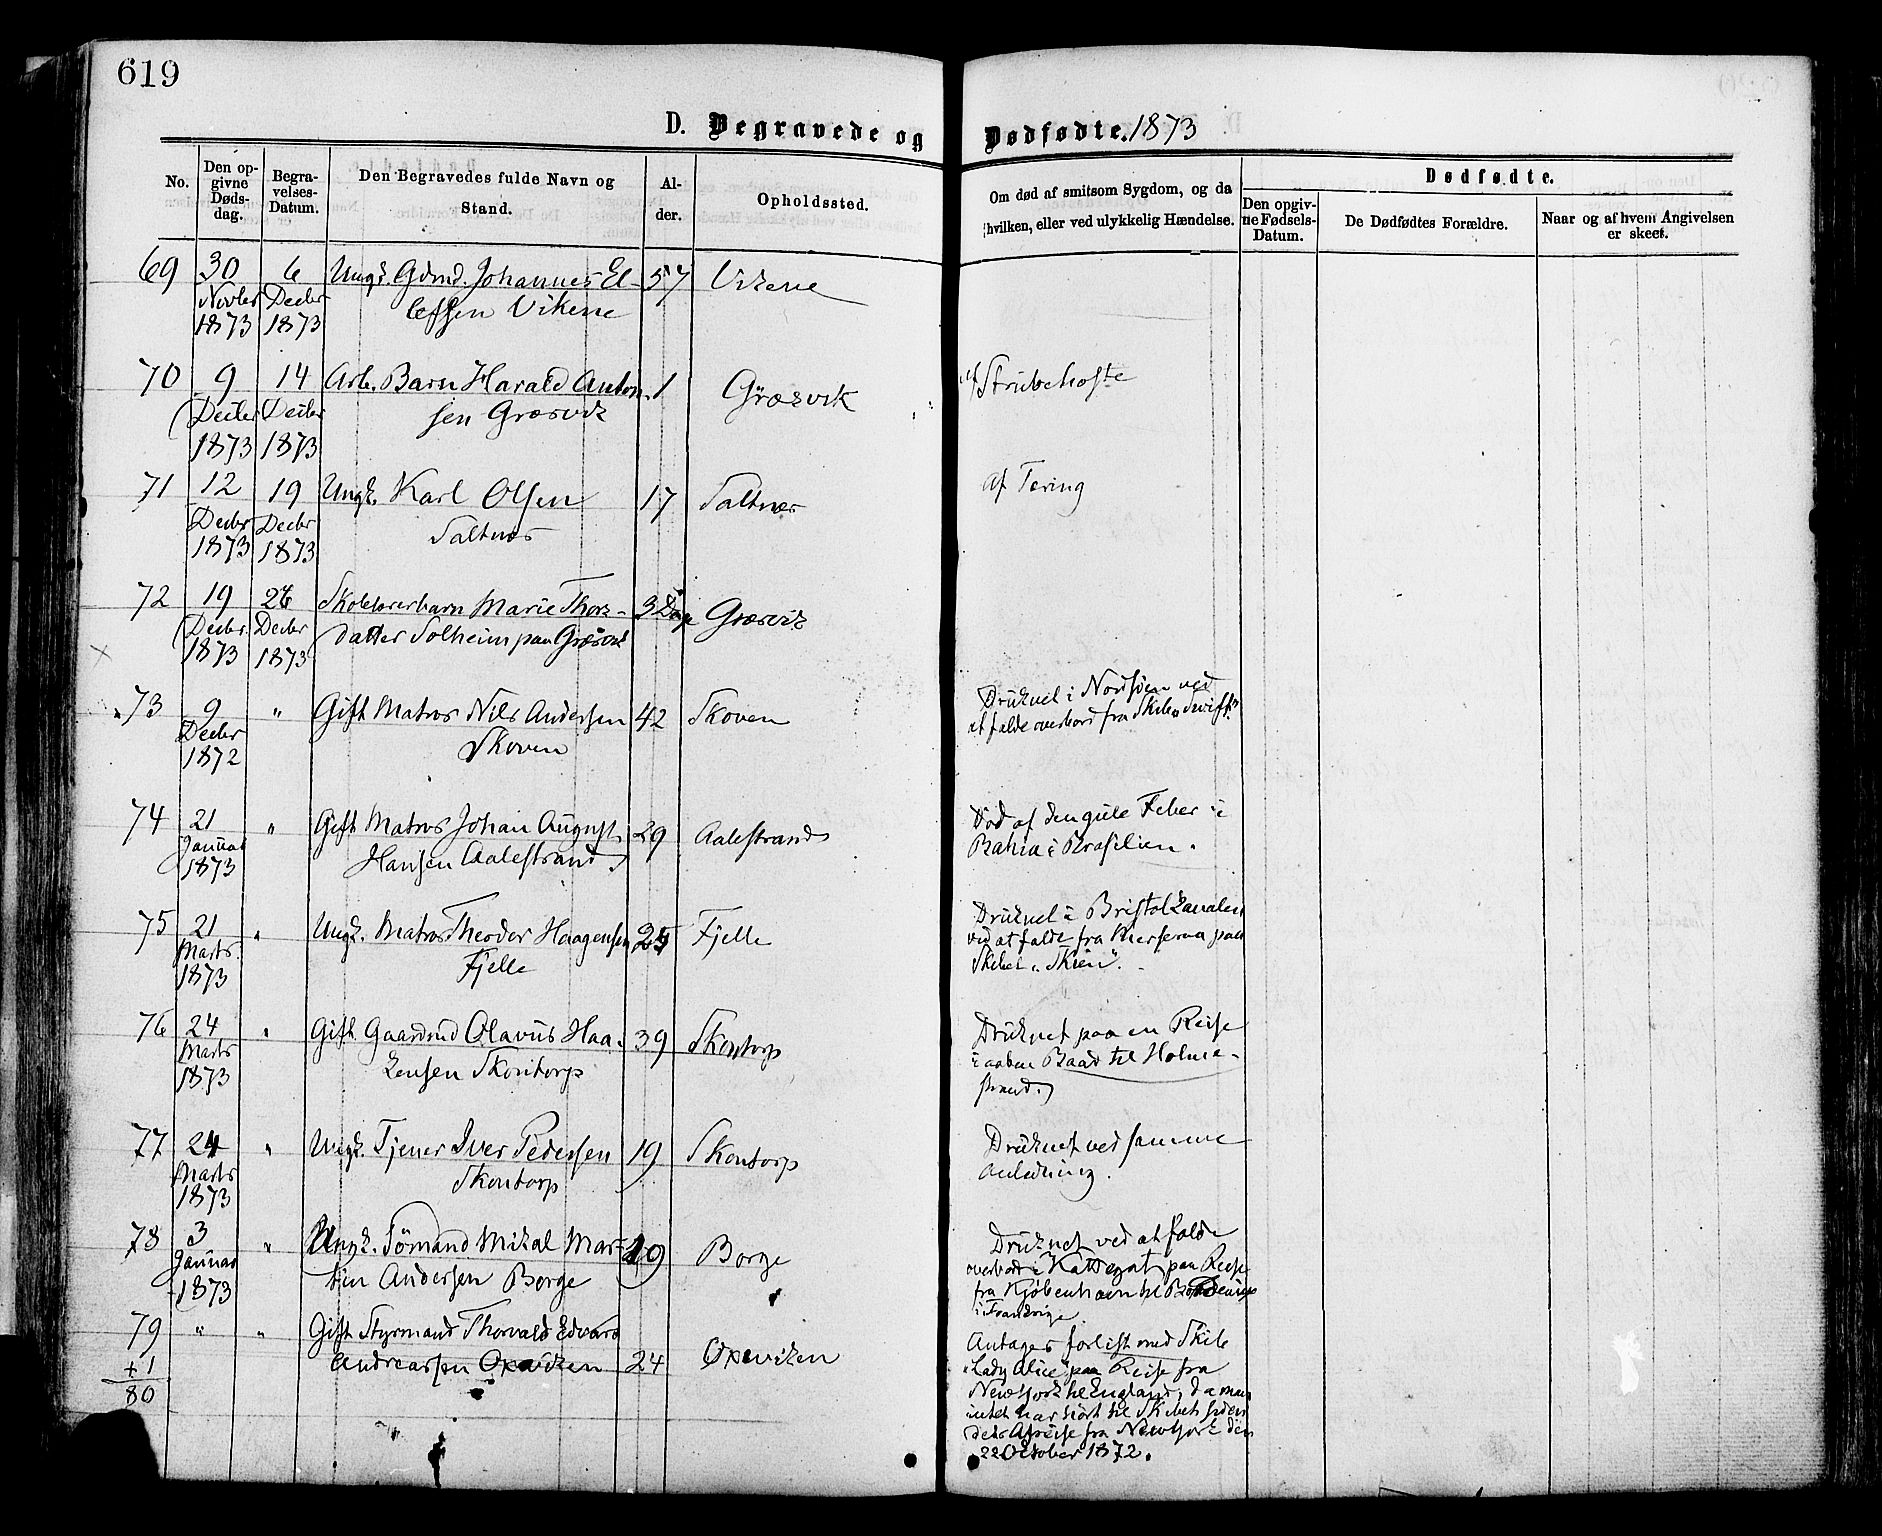 619
D. Begravede og Dødfødte. 1873
No.
Den opgivne Dødsdag.
Begravelses-Datum.
Den Begravedes fulde Navn og Stand.
Alder.
Opholdssted.
Om død af smitsom Sygdom, og da hvilken, eller ved ulykkelig Hændelse.
Dødfødte.
Den opgivne Fødsels-Datum.
De Dødfødtes Forældre.
Naar og af hvem Angivelsen er skeet.
69 30 6 Ungk. Gdmd. Johannes El- 57 Vikene
Novbr Decbr lefsen Vikene
1873 1873
70 9 14 Arb. Barn Harald Anton- 1 Græsvik af Strubehoste
Decbr Decbr sen Græsvik
1873 1873
71 12 19 Ungk. Karl Olsen 17 Saltnes af Tæring
Decbr Decbr Saltnes
1873 1873
72 19 26 Skolelærerbarn Marie Thors- 3 Dage Græsvik
Decbr Decbr datter Solheim paa Græsvik
1873 1873
73 9 " Gift Matros Nils Andersen 42 Skoven Druknet i Nordsøen ved
Decbr Skoven at falde overbord fra Skibet "Swift"
1872
74 21 " Gift Matros Johan August 29 Aalestrand Død af den gule Feber i
Januar Hansen Aalestrand Bahia i Brasilien.
1873
75 21 " Ungk. Matros Theodor Haagensen 25 Fjelle Druknet i Bristolkanalen
Marts Fjelle ved at falde fra Mersseraa paa
1873 Skibet "Skien".
76 24 " Gift Gaardmd Olavus Haa- 39 Skontorp Druknet paa en Reise
Marts kensen Skontorp i aaben Baad til Holme-
1873 strand.
77 24 " Ungk. Tjener Iver Pedersen 19 Skontorp Druknet ved samme
Marts Skontorp Anledning.
1873
78 3 " Ungk. Sømand Mikal Mar- 19 Borge Druknet ved at falde
Januar tin Andersen Borge overbord i Kattegat paa Reise
1873 fra Kjøbenhavn til
i Frankrige.
79 " " Gift Styrmand Thorvald Edvard Antages forlist med Skib
+1 Andreassen Oxeviken 24 Oxeviken "Lady Alice" paa Reise fra
80 Newyork til England, da man
intet har hørt til Skibet siden
dets Afreise fra Newyork den
22 Oktober 1872.